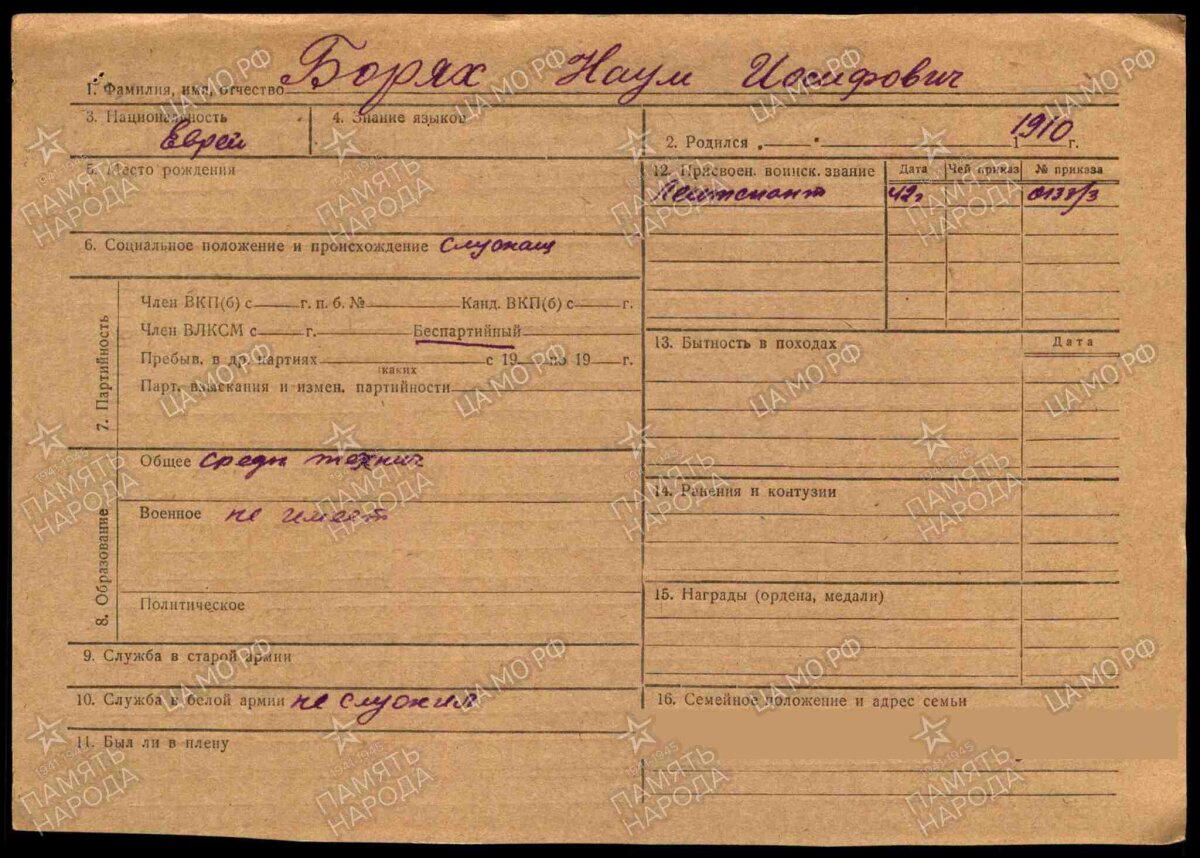 1. Фамилия, имя, отчество Борях Наум Иосифович
3. Национальность Еврей
4. Знание языков
2. Родился „ — “ 1910 г.
5. Место рождения
6. Социальное положение и происхождение служащ
7. Партийность
Член ВКП(б) с — г. п. б. № — Канд. ВКП(б) с — г.
Член ВЛКСМ с — г. Беспартийный
Пребыв. в др. партиях — с 19 — по 19 — г.
каких
Парт. взыскания и измен. партийности
8. Образование
Общее средн технич
Военное не имеет
Политическое
9. Служба в старой армии
10. Служба в белой армии не служил
11. Был ли в плену
12. Присвоен. воинск. звание Дата Чей приказ № приказа
Лейтенант 42г 0138/3
13. Бытность в походах Дата
14. Ранения и контузии
15. Награды (ордена, медали)
16. Семейное положение и адрес семьи
ЦАМО.РФ
1941-1945
ПАМЯТЬ
НАРОДА